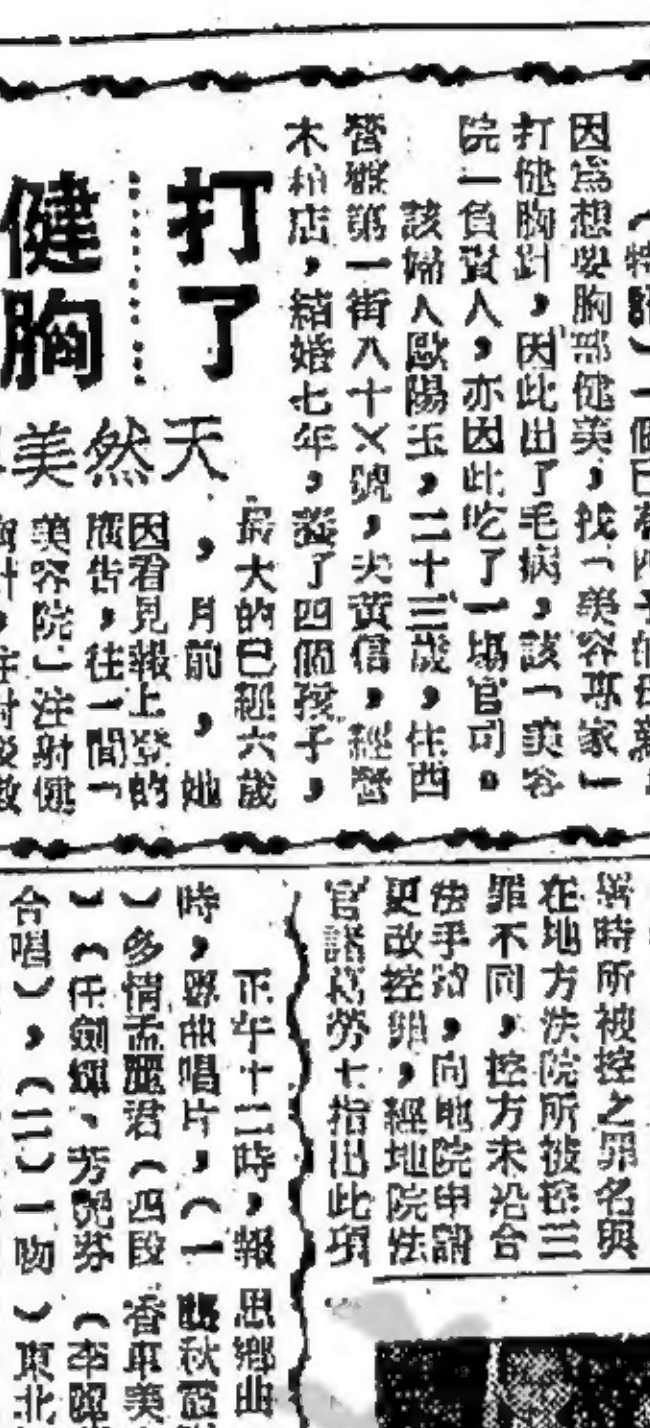 打了
健胸
天然美
因為想要胸部健美，找「美容專家」
打健胸針，因此出了毛病，該「美容
院」負責人，亦因此吃了一場官司。
該婦人歐陽玉，二十三歲，住西
營盤第一街八十×號，夫黃信，經營
木箱店，結婚七年，養了四個孩子，
最大的已經六歲
，月前，她
因看見報上登的
廣告，往一間「
美容院」注射健
署時所被控之罪名與
在地方法院所被控三
罪不同，控方未沿合
法手續，向地院申請
更改控罪，經地院法
官諾
勞士指出此項
正午十二時，報
時，歌曲唱片，（一
）多情孟麗君（四段
）（任劍輝、芳艷芬
合唱），（二）一吻
思鄉曲
秋
香車美
（李
）東北